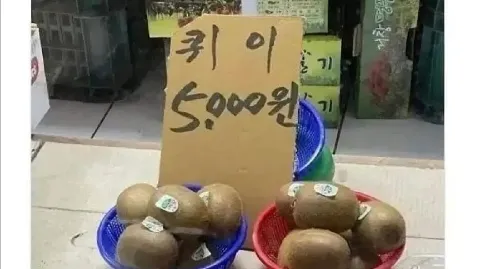 퀴 이
5,000원
기